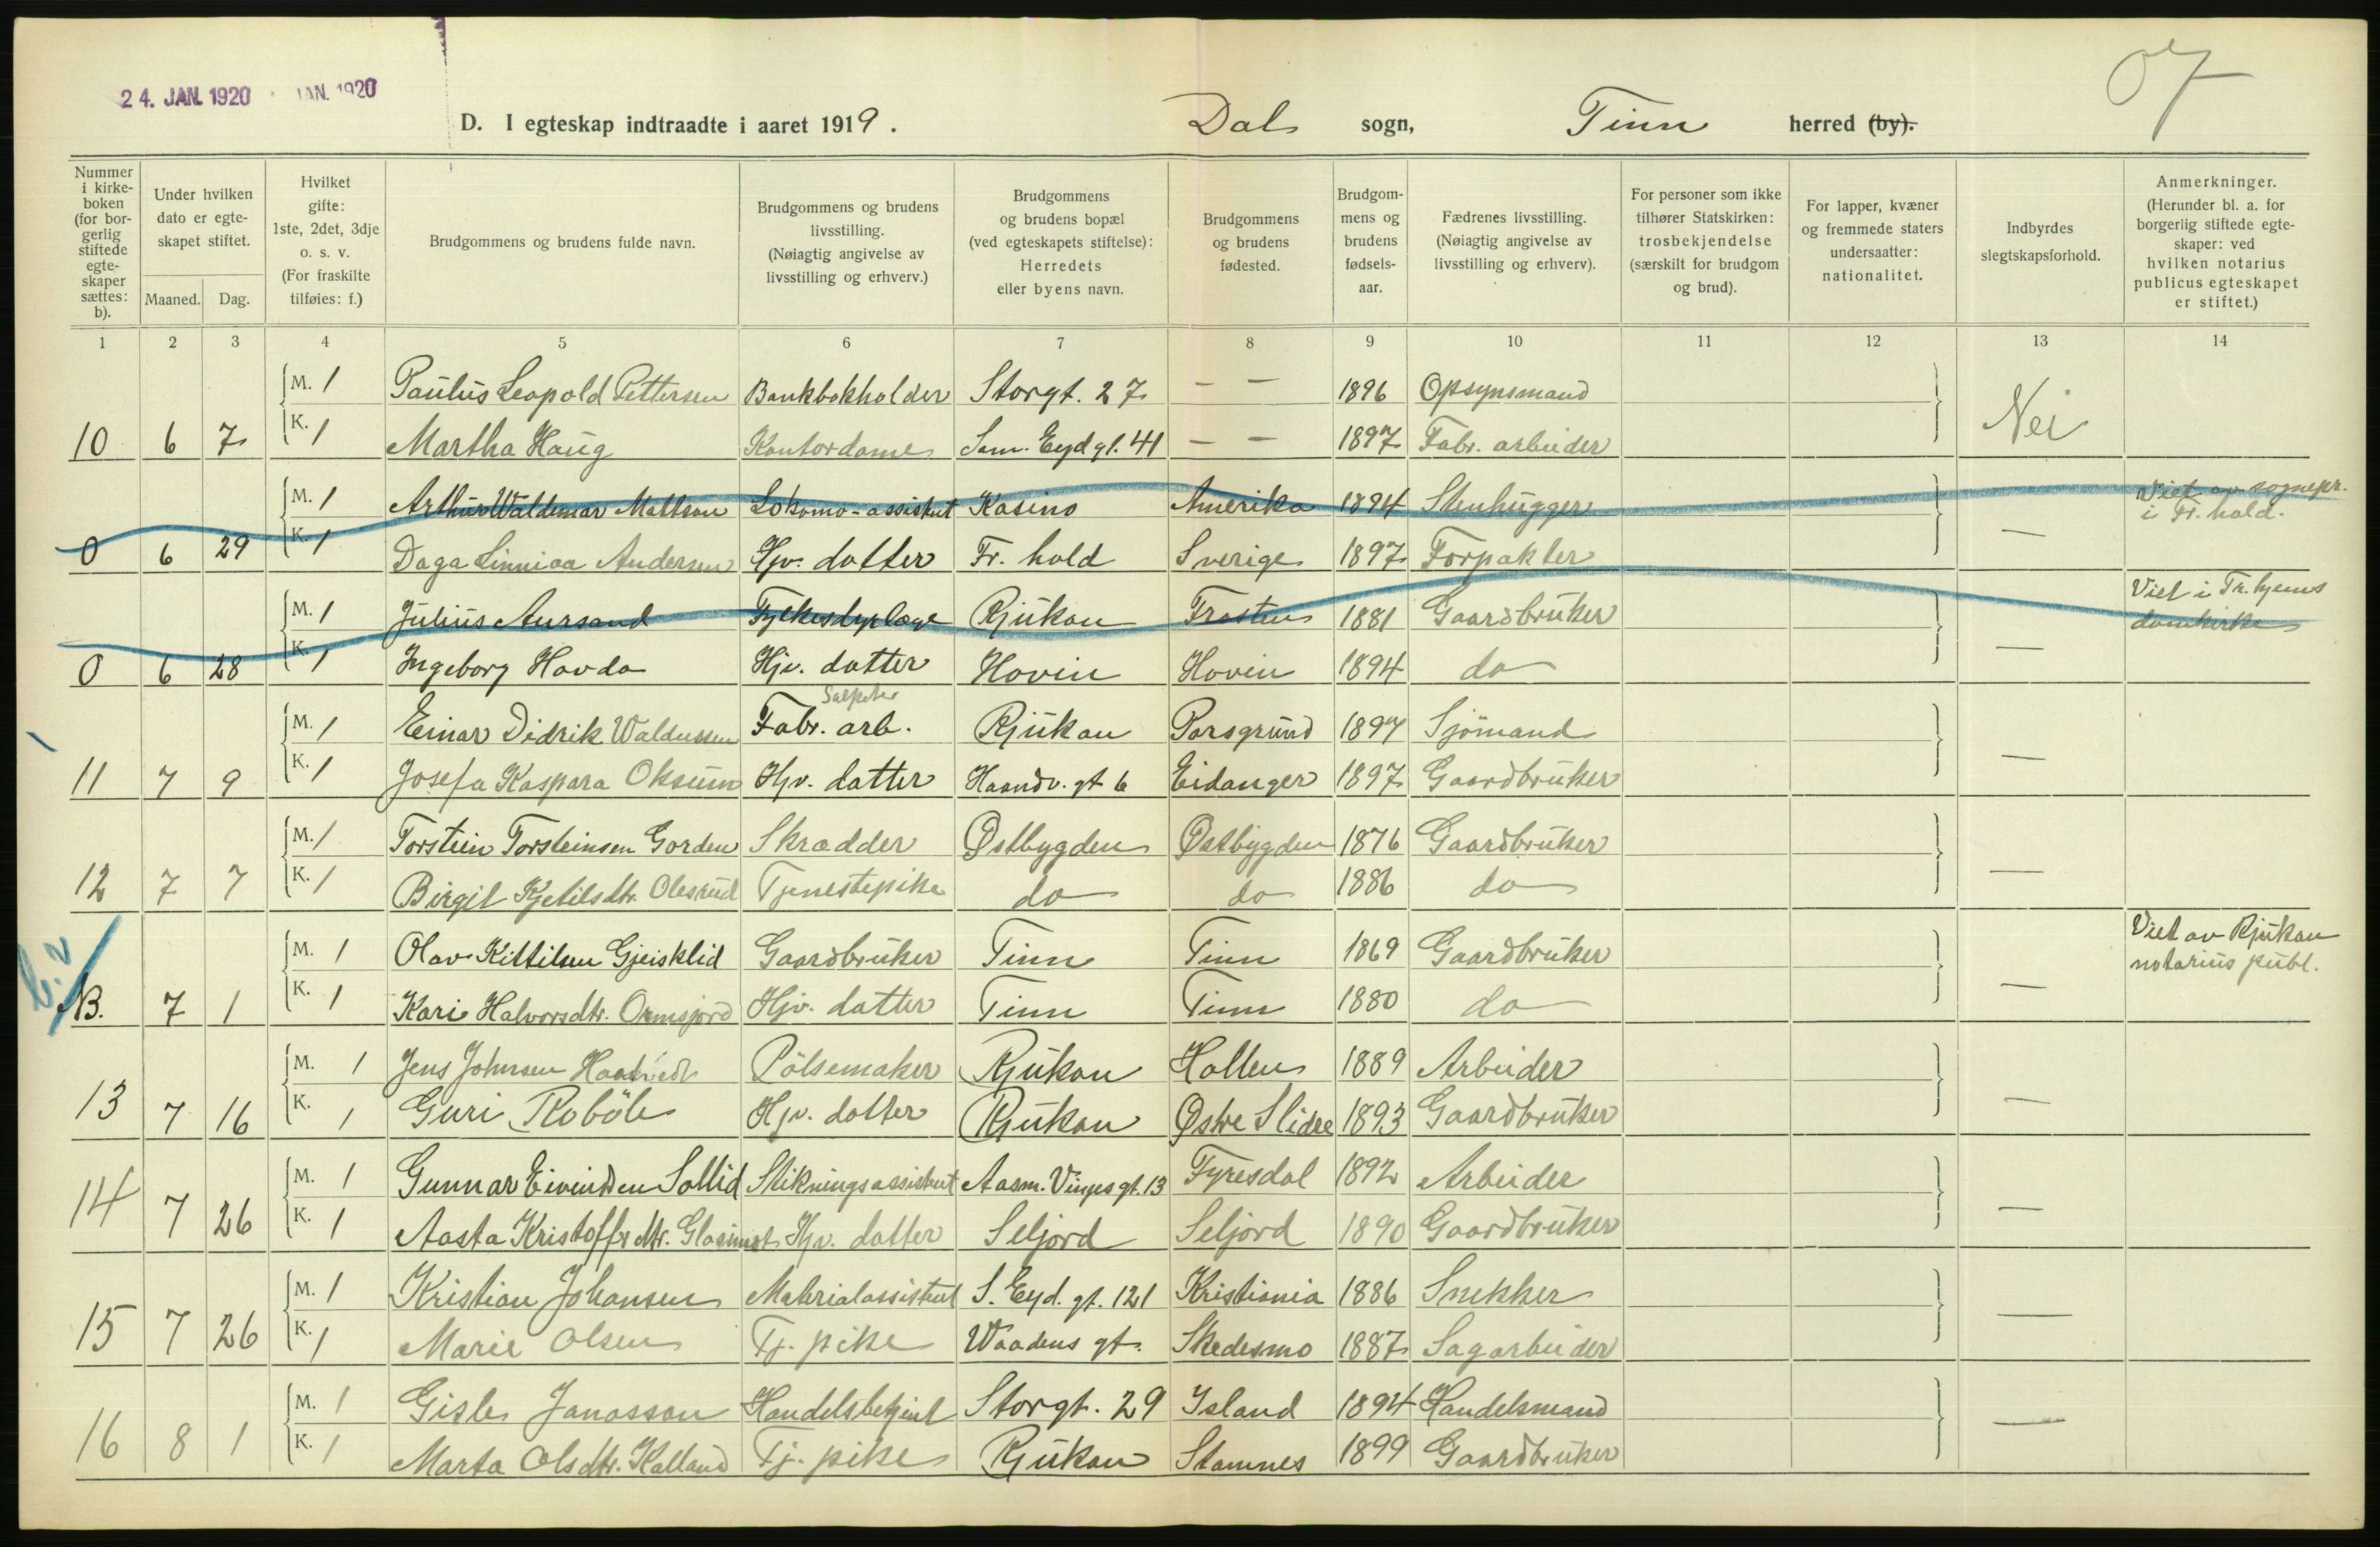 24. JAN. 1920 JAN. 1920
07
D. I egteskap indtraadte i aaret 1919. Dal sogn, Tinn herred (by).
Nummer i kirke-boken (for bor-gerlig stiftede egte-skaper sættes: b).
Under hvilken dato er egte-skapet stiftet.
Maaned. Dag.
Hvilket gifte: 1ste, 2det, 3dje o. s. v. (For fraskilte tilføies: f.)
Brudgommens og brudens fulde navn.
Brudgommens og brudens livsstilling. (Nøiagtig angivelse av livsstilling og erhverv.)
Brudgommens og brudens bopæl (ved egteskapets stiftelse): Herredets eller byens navn.
Brudgommens og brudens fødested.
Brudgom-mens og brudens fødsels-aar.
Fædrenes livsstilling. (Nøiagtig angivelse av livsstilling og erhverv).
For personer som ikke tilhører Statskirken: trosbekjendelse (særskilt for brudgom og brud).
For lapper, kvæner og fremmede staters undersaatter: nationalitet.
Indbyrdes slegtskapsforhold.
Anmerkninger. (Herunder bl. a. for borgerlig stiftede egte-skaper: ved hvilken notarius publicus egteskapet er stiftet.)
1 2 3 4 5 6 7 8 9 10 11 12 13 14
M. 1 Paulus Leopold Pettersen Bankbokholder Storgt. 27 — — 1896 Opsynsmand
10 6 7 K. 1 Martha Haug Kontordame Sam. Eyd gt. 41 — — 1897 Fabr. arbeider Nei
M. 1 Arthur Waldemar Mattson Lokomo-assistent Kasino Amerika 1894 Stenhugger Viet av sognepr.
i Fr. hald.
0 6 29 K. 1 Daga Linniaa Andersen Hjv. datter Fr. hald Sverige 1897 Forpakter —
M. 1 Julius Aursand Fylkesdyrlæge Rjukan Frosten 1881 Gaardbruker Viet i Tr. hjems
domkirke
0 6 28 K. 1 Ingeborg Hovda Hjv. datter Hovin Hovin 1894 do —
Salpeter
M. 1 Einar Didrik Waldussen Fabr. arb. Rjukan Porsgrund 1897 Sjömand
11 7 9 K. 1 Josefa Kaspara Oksum Hjv. datter Haandv. gt 6 Eidanger 1897 Gaardbruker —
M. 1 Torstein Torsteinsen Gorden Skrædder Østbygden Østbygden 1876 Gaardbruker
12 7 7 K. 1 Birgit Kjetilsdtr. Olesrud Tjenestepike do do 1886 do —
M. 1 Olav Kittilsen Gjeisklid Gaardbruker Tinn Tinn 1869 Gaardbruker Viet av Rjukan
notarius publ.
b. 2
NB. 7 1 K. 1 Kari Halvorsdtr. Ormsjord Hjv. datter Tinn Tinn 1880 do —
M. 1 Jens Johnsen Pölsemaker Rjukan Hollen 1889 Arbeider
13 7 16 K. 1 Guri Roböle Hjv. datter Rjukan Østre Slidre 1893 Gaardbruker —
M. 1 Gunnar Eivindsen Sollid Stikningsassistent Aasm. Vinjes gt. 13 Fyresdal 1892 Arbeider
14 7 26 K. 1 Aasta Kristoffrdtr. Hjv. datter Seljord Seljord 1890 Gaardbruker —
M. 1 Kristian Johansen Materialassistent S. Eyd. gt. 121 Kristiania 1886 Snekker
15 7 26 K. 1 Marie Olsen Tj. pike Waadens gt. Skedesmo 1887 Sagarbeider —
M. 1 Gisle Jonasson Handelsbetjent Storgt. 29 Island 1894 Handelsmand
16 8 1 K. 1 Marta Olsdtr. Kalland Tj. pike Rjukan Stamnes 1899 Gaardbruker —